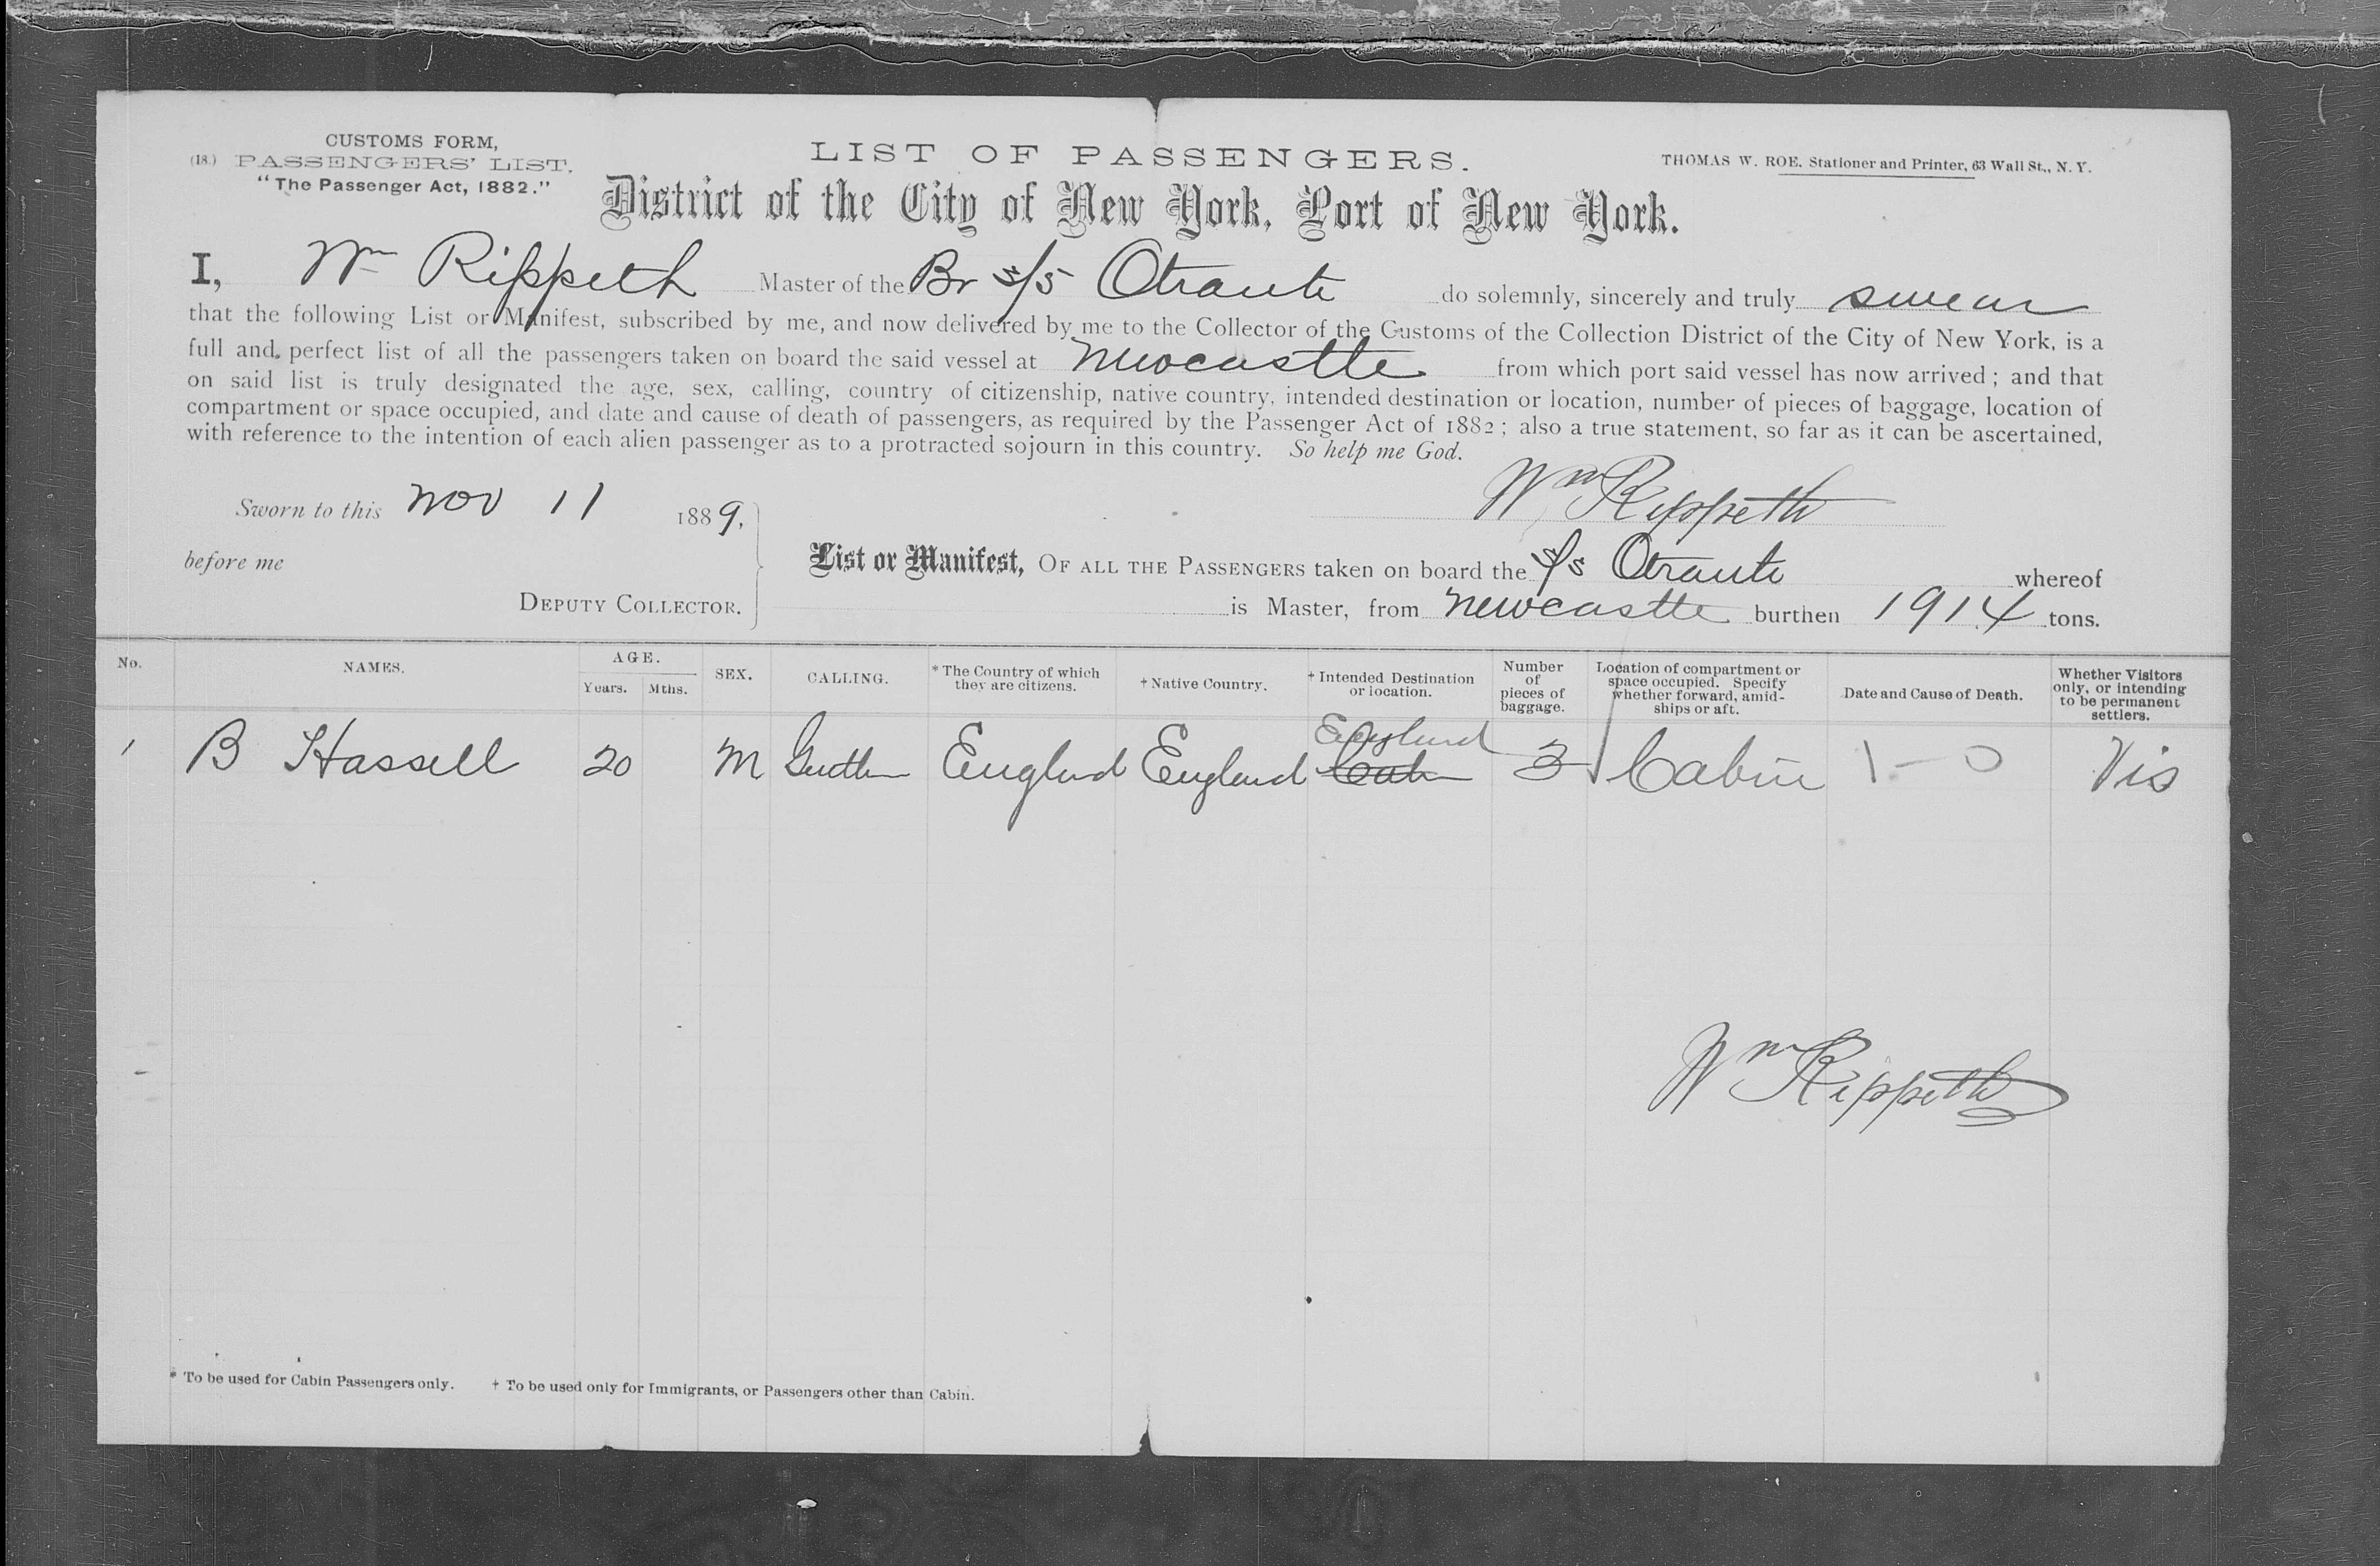 CUSTOMS FORM,
(18.) PASSENGERS' LIST.
"The Passenger Act, 1882."
LIST OF PASSENGERS.
THOMAS W. ROE, Stationer and Printer, 63 Wall St., N. Y.
District of the City of New York, Port of New York.
I, Wm Rippeth Master of the Br s/s Otranto do solemnly, sincerely and truly swear
that the following List or Manifest, subscribed by me, and now delivered by me to the Collector of the Customs of the Collection District of the City of New York, is a
full and perfect list of all the passengers taken on board the said vessel at Newcastle from which port said vessel has now arrived; and that
on said list is truly designated the age, sex, calling, country of citizenship, native country, intended destination or location, number of pieces of baggage, location of
compartment or space occupied, and date and cause of death of passengers, as required by the Passenger Act of 1882; also a true statement, so far as it can be ascertained,
with reference to the intention of each alien passenger as to a protracted sojourn in this country. So help me God.
Wm Rippeth
Sworn to this Nov 11 1889,
before me
DEPUTY COLLECTOR.
List or Manifest, OF ALL THE PASSENGERS taken on board the s/s Otranto whereof
is Master, from Newcastle burthen 1914 tons.
No. NAMES. AGE. Years. Mths. SEX. CALLING. * The Country of which they are citizens. † Native Country. † Intended Destination or location. Number of pieces of baggage. Location of compartment or space occupied. Specify whether forward, amid-ships or aft. Date and Cause of Death. Whether Visitors only, or intending to be permanent settlers.
England
1 B Hassell 20 M Gentlm England England 3 Cabin 1 - 0 Vis
Wm Rippeth
* To be used for Cabin Passengers only. † To be used only for Immigrants, or Passengers other than Cabin.